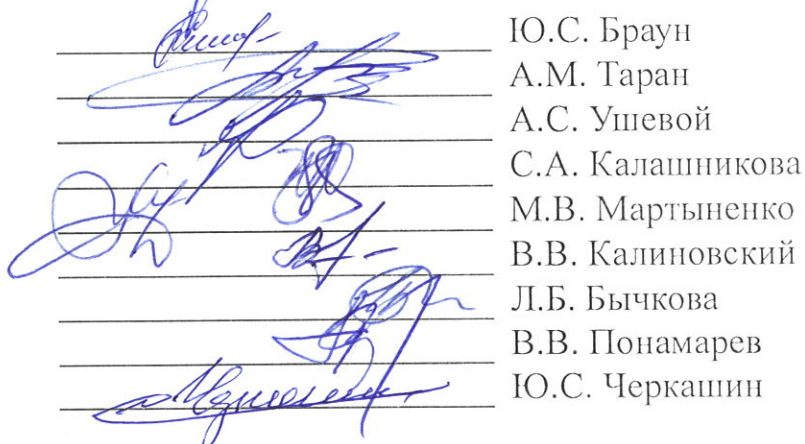 Ю.С. Браун
А.М. Таран
А.С. Ушевой
С.А. Калашникова
М.В. Мартыненко
В.В. Калиновский
Л.Б. Бычкова
В.В. Понамарев
Ю.С. Черкашин